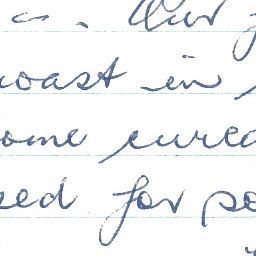 Our
oast in
ome cured
sed for po